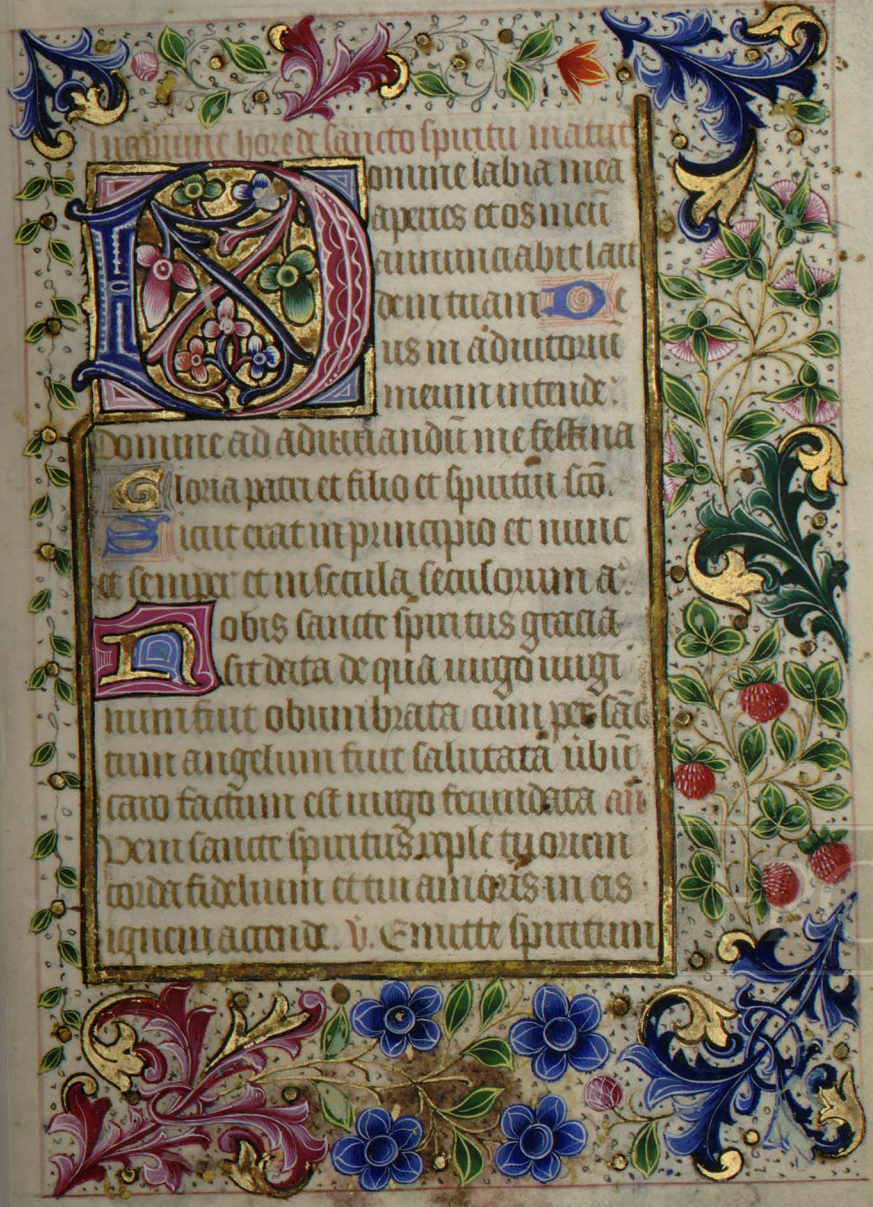 Incipiunt hore de sancto spiritu matut
Domine labia mea
aperies et os meū
annunciabit lau
dem tuam De
us in adiutoriū
meum intende.
Domine ad adiuuandū me festina
Gloria patri et filio et spiritui sc̄o.
Sicut erat in principio et nunc
et semper et in secula seculorum a.
Nobis sancte sp̄iritus gracia
sit data de qua uirgo uirgi
num fuit obumbrata cum per sāc
tum angelum fuit salutata ūbū
caro factum est uirgo fecundata añ
Veni sancte spiritus reple tuorum
corda fidelium et tui amoris in eis
ignem accende. v. Emitte spiritum